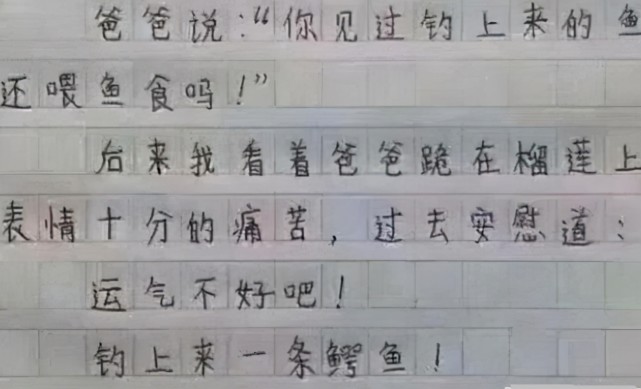 爸爸说:“你见过钓上来的鱼
还喂鱼食吗!”
后来我看着爸爸跪在榴莲上
表情十分的痛苦,过去安慰道:
运气不好吧!
钓上来一条鳄鱼!